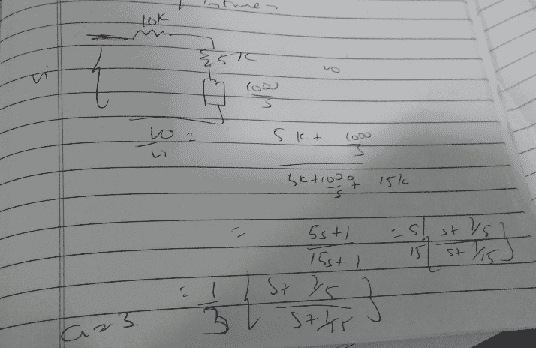 10K
5K
vi
vo
1000/s
vo/vi = 5K + 1000/s
5K+1000/s + 15K
= 5s+1 / 15s+1 = 5/15 [ s+ 1/5 / s+ 1/15 ]
= 1/3 [ s+ 1/5 / s+1/15 ]
a=3